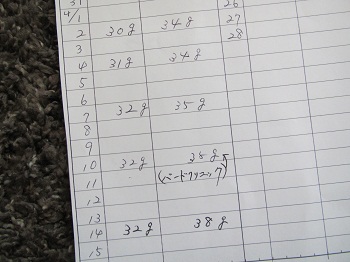 31 26
4/1 27
2 30g 34g 28
3
4 31g 34g
5
6
7 32g 35g
8
9
10 32g 38g
11 (バードテック?)
12
13
14 32g 38g
15